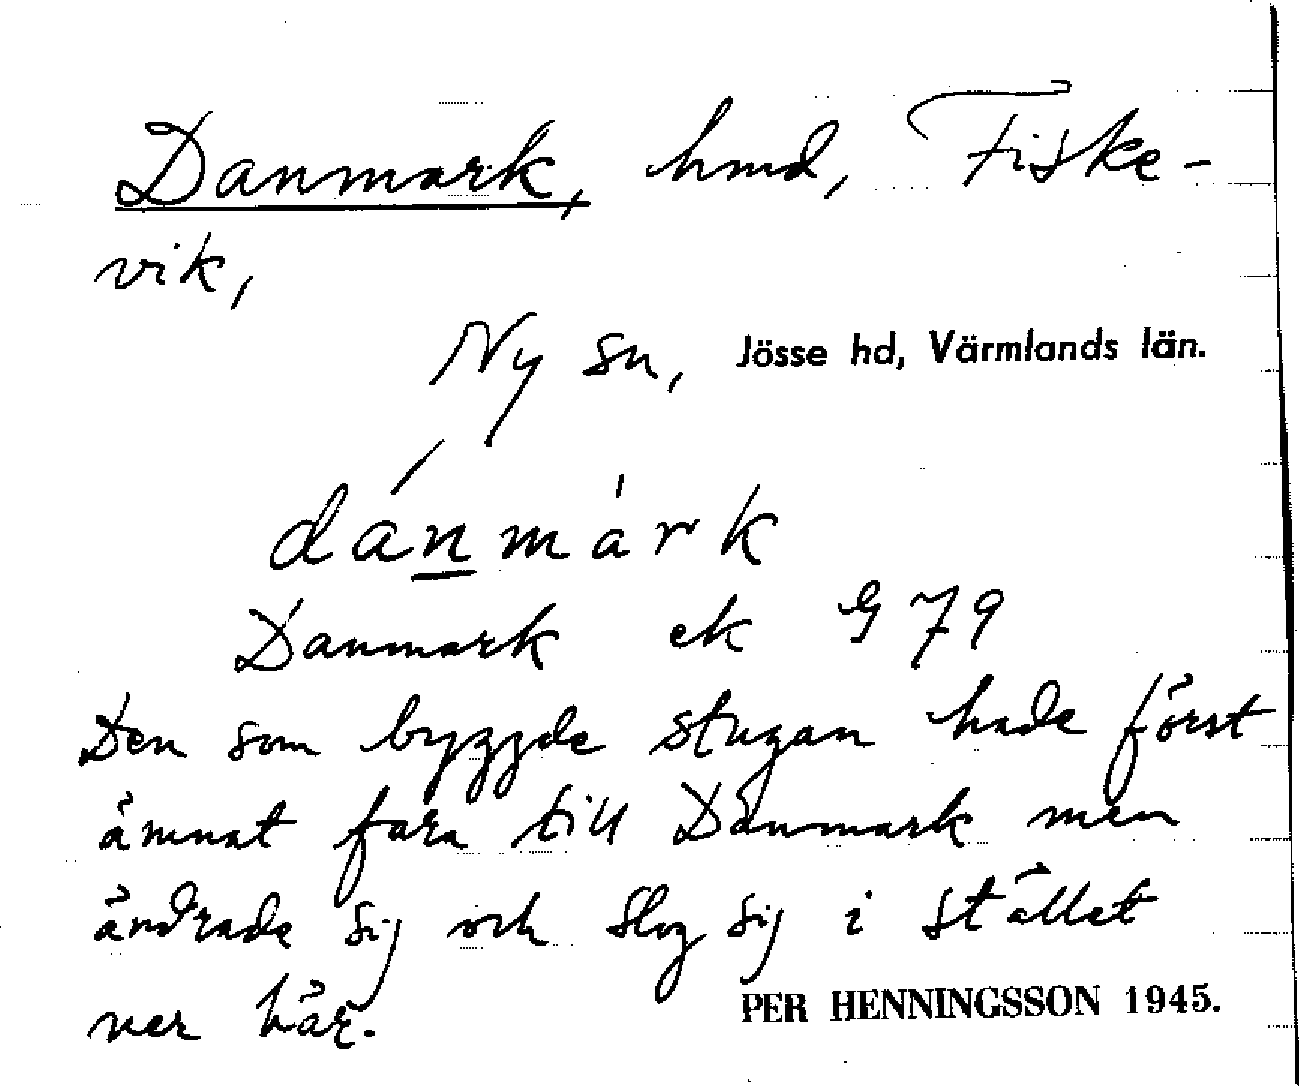 Danmark, hmd, Fiske-
vik,
Ny sn, Jösse hd, Värmlands län.
dánmàrk
Danmark ek G 79
Den som byggde stugan hade först
ämnat fara till Danmark men
ändrade sig och slog sig i stället
ner här.
PER HENNINGSSON 1945.